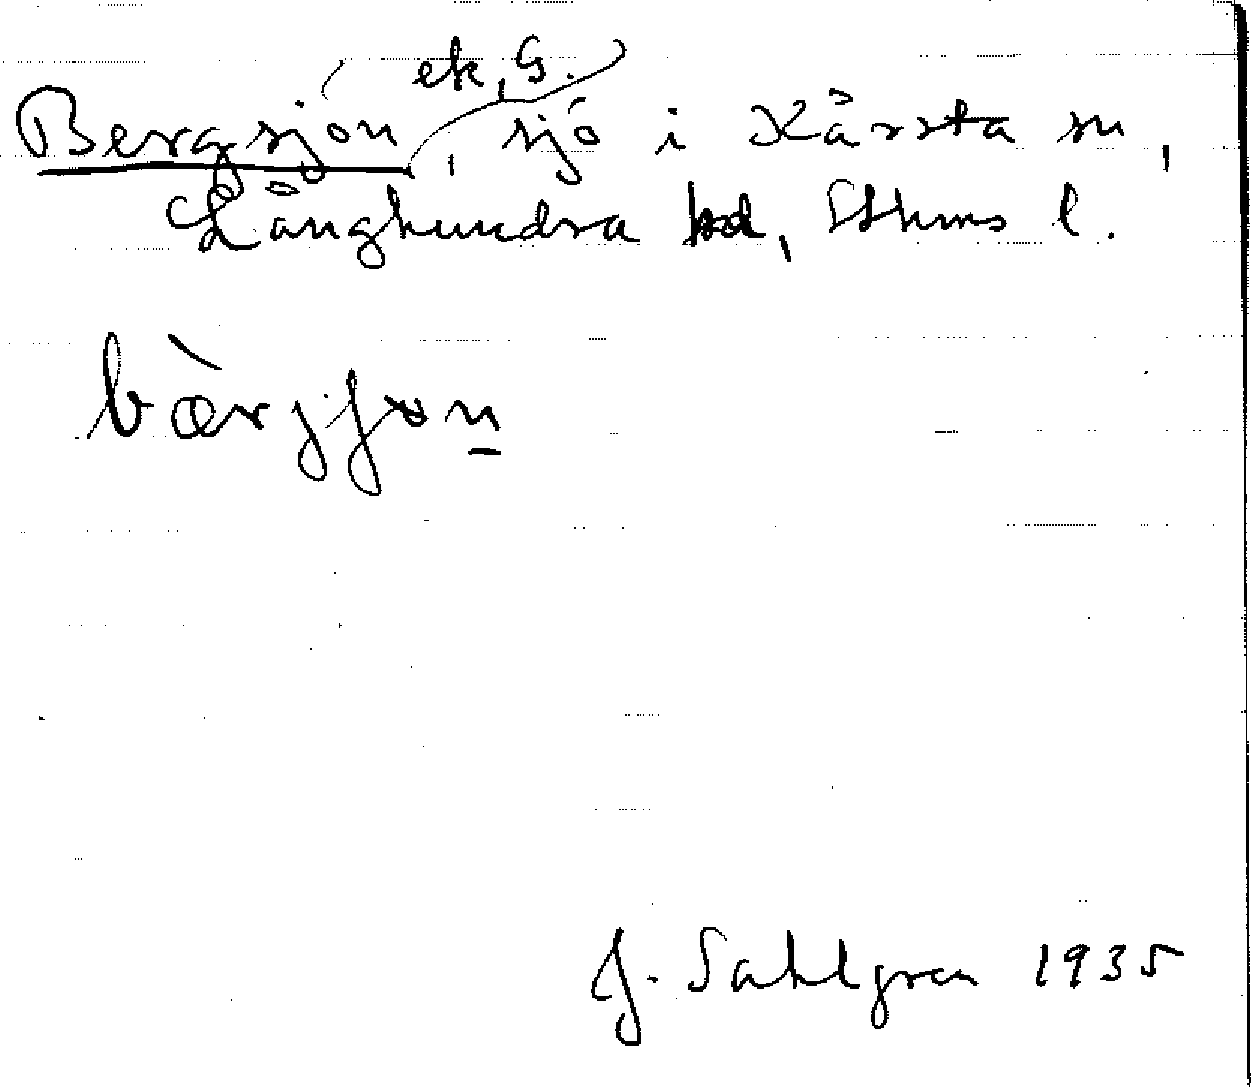 ek. G.
Bergsjön, sjö i Kårsta sn,
Långhundra hd, Sthms l.
bærjʃon
J. Sahlgren 1935